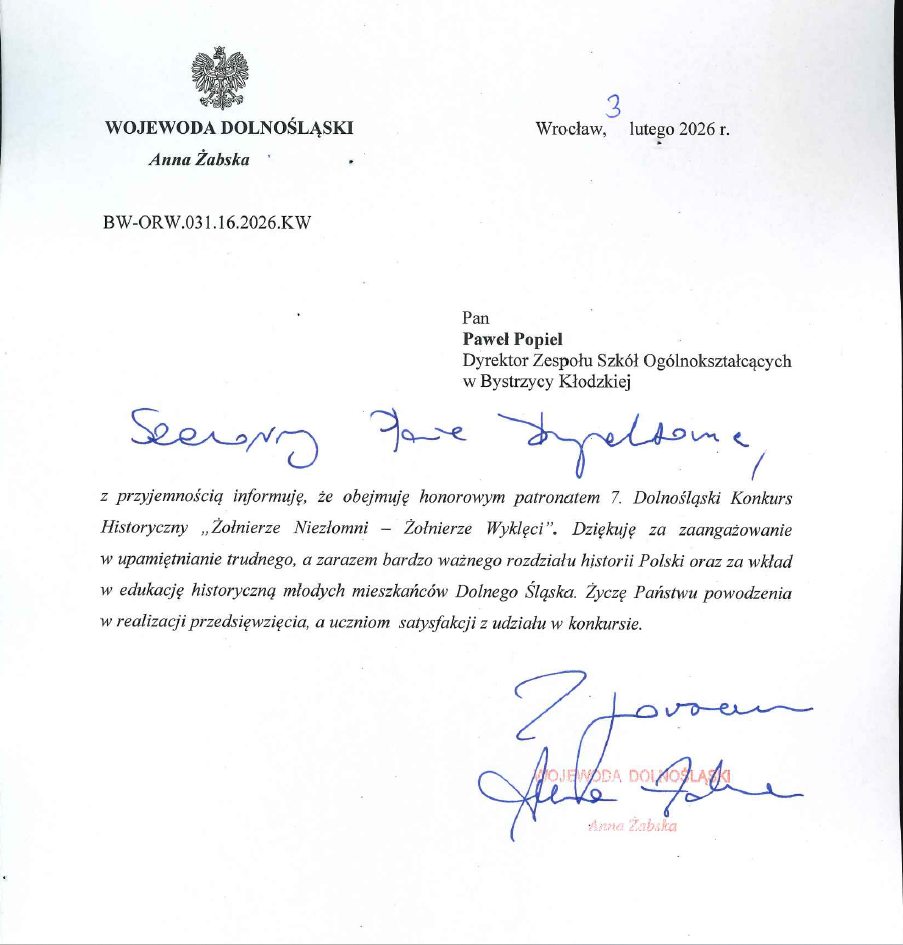 WOJEWODA DOLNOŚLĄSKI
Anna Żabska
3
Wrocław, lutego 2026 r.
BW-ORW.031.16.2026.KW
Pan
Paweł Popiel
Dyrektor Zespołu Szkół Ogólnokształcących
w Bystrzycy Kłodzkiej
Szanowny Panie Dyrektorze,
z przyjemnością informuję, że obejmuję honorowym patronatem 7. Dolnośląski Konkurs
Historyczny „Żołnierze Niezłomni – Żołnierze Wyklęci”. Dziękuję za zaangażowanie
w upamiętnianie trudnego, a zarazem bardzo ważnego rozdziału historii Polski oraz za wkład
w edukację historyczną młodych mieszkańców Dolnego Śląska. Życzę Państwu powodzenia
w realizacji przedsięwzięcia, a uczniom satysfakcji z udziału w konkursie.
WOJEWODA DOLNOŚLĄSKI
Anna Żabska